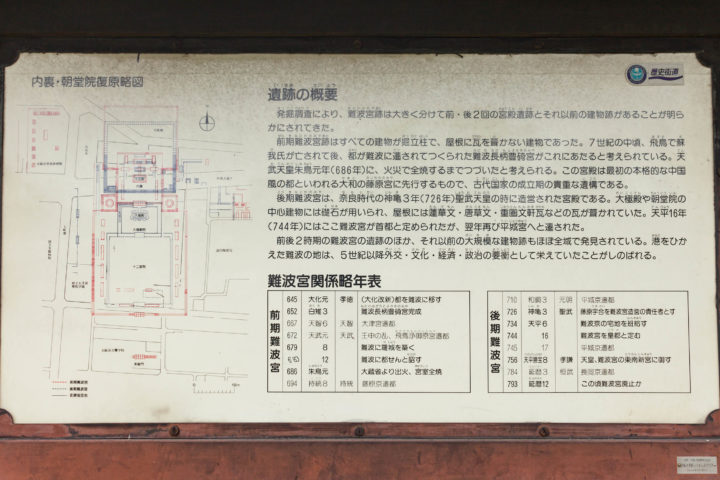 内裏・朝堂院復原略図
歴史街道
遺跡の概要
発掘調査により、難波宮跡は大きく分けて前・後2回の宮殿遺跡とそれ以前の建物跡があることが明ら
かにされてきた。
前期難波宮跡はすべての建物が掘立柱で、屋根に瓦を葺かない建物であった。7世紀の中頃、飛鳥で蘇
我氏が亡されて後、都が難波に遷されてつくられた難波長柄豊碕宮がこれにあたると考えられている。天
武天皇朱鳥元年(686年)に、火災で全焼するまでつづいたと考えられる。この宮殿は最初の本格的な中国
風の都といわれる大和の藤原宮に先行するもので、古代国家の成立期の貴重な遺構である。
後期難波宮は、奈良時代の神亀3年(726年)聖武天皇の時に造営された宮殿である。大極殿や朝堂院の
中心建物には礎石が用いられ、屋根には蓮華文・唐草文・重圏文軒瓦などの瓦が葺かれていた。天平16年
(744年)にはここ難波宮が首都と定められたが、翌年再び平城宮へと遷された。
前後2時期の難波宮の遺跡のほか、それ以前の大規模な建物跡もほぼ全域で発見されている。港をひか
えた難波の地は、5世紀以降外交・文化・経済・政治の要衝として栄えていたことがしのばれる。
難波宮関係略年表
前期難波宮
645 大化元 孝徳 (大化改新)都を難波に移す
652 白雉3 難波長柄豊碕宮完成
667 天智6 天智 大津宮遷都
672 天武元 天武 壬申の乱、飛鳥浄御原宮遷都
679 8 難波に羅城を築く
12 難波に都せんと詔す
686 朱鳥元 大蔵省より出火、宮室全焼
694 持統8 持統 藤原京遷都
後期難波宮
710 和銅3 元明 平城京遷都
726 神亀3 聖武 藤原宇合を難波宮造営の責任者とす
734 天平6 難波京の宅地を班給す
744 16 難波宮を皇都と定む
745 17 平城京遷都
756 天平勝宝8 孝謙 天皇、難波宮の東南新宮に御す
784 延暦3 桓武 長岡京遷都
793 延暦12 この頃難波宮廃止か